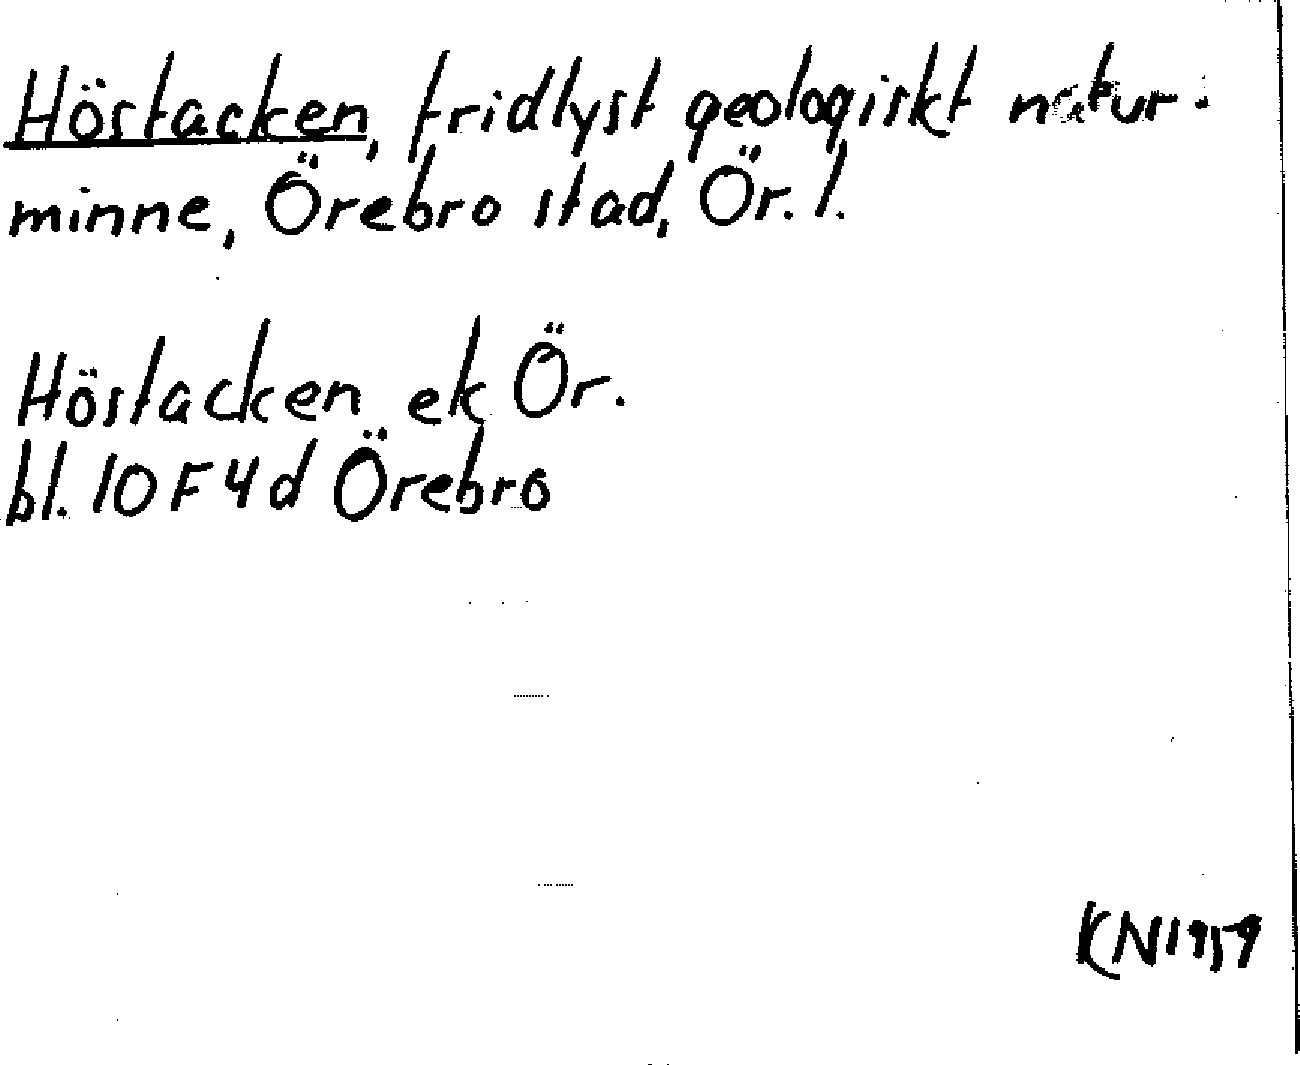 Höstacken, fridlyst geologiskt natur-
minne, Örebro stad, Ör. l.
Höstacken ek Ör.
bl. 10 F 4 d Örebro
KN 1959